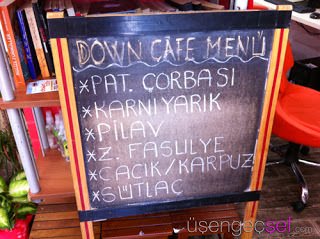 DOWN CAFE MENÜ
*PAT. ÇORBASI
*KARNIYARIK
*PİLAV
*Z. FASULYE
*CACIK/KARPUZ
*SÜTLAÇ
üsengecsef.com